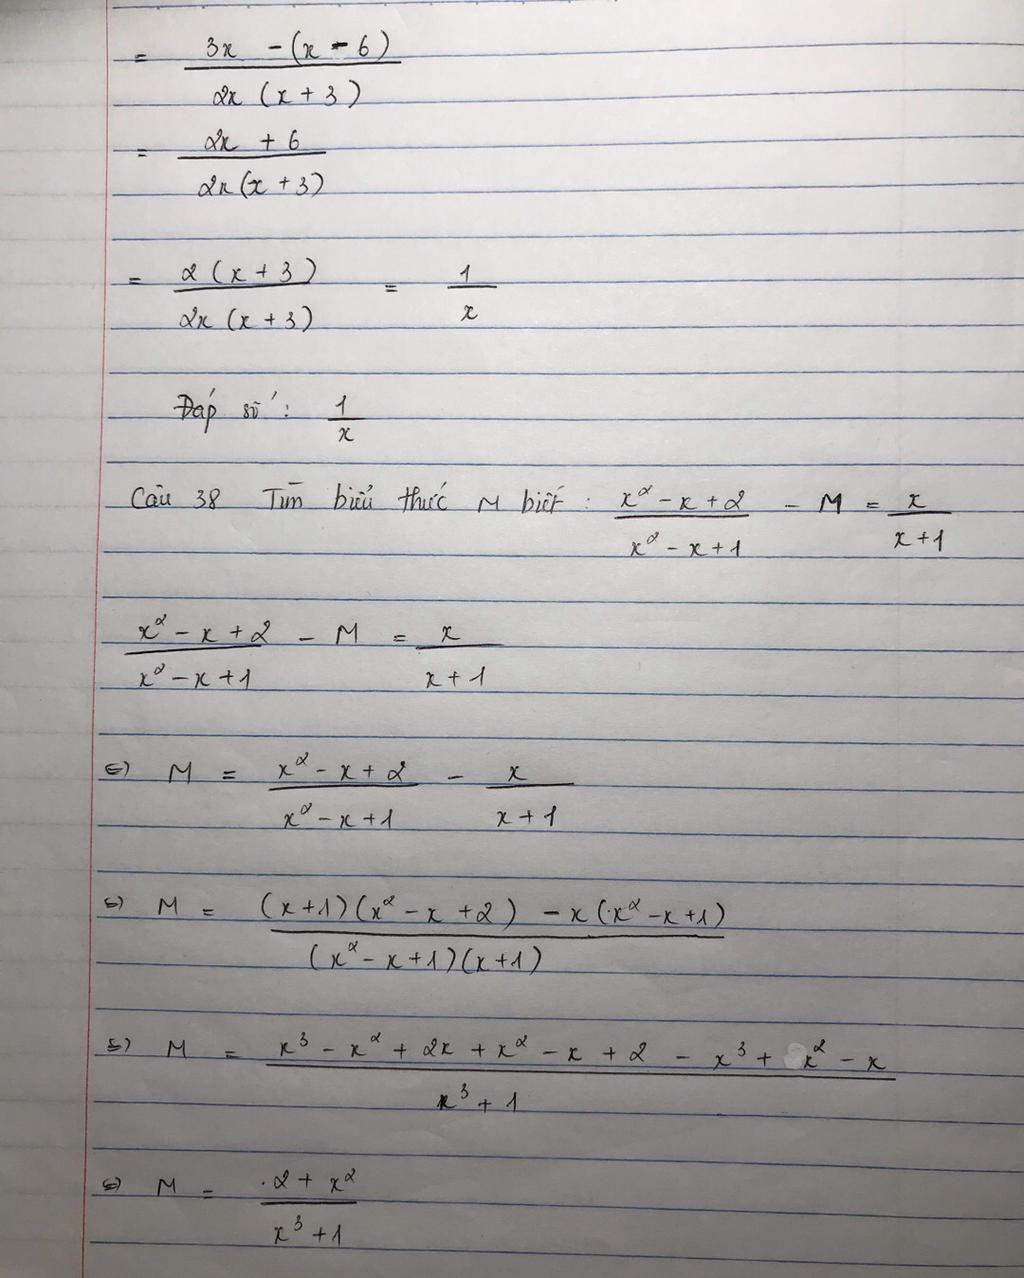 = \frac{3x - (x - 6)}{2x (x + 3)}
= \frac{2x + 6}{2x (x + 3)}
= \frac{2 (x + 3)}{2x (x + 3)} = \frac{1}{x}
Đáp số: \frac{1}{x}
Câu 38 Tìm biểu thức M biết: \frac{x^2 - x + 2}{x^2 - x + 1} - M = \frac{x}{x + 1}
\frac{x^2 - x + 2}{x^2 - x + 1} - M = \frac{x}{x + 1}
⇔ M = \frac{x^2 - x + 2}{x^2 - x + 1} - \frac{x}{x + 1}
⇔ M = \frac{(x + 1)(x^2 - x + 2) - x(x^2 - x + 1)}{(x^2 - x + 1)(x + 1)}
⇔ M = \frac{x^3 - x^2 + 2x + x^2 - x + 2 - x^3 + x^2 - x}{x^3 + 1}
⇔ M = \frac{2 + x^2}{x^3 + 1}